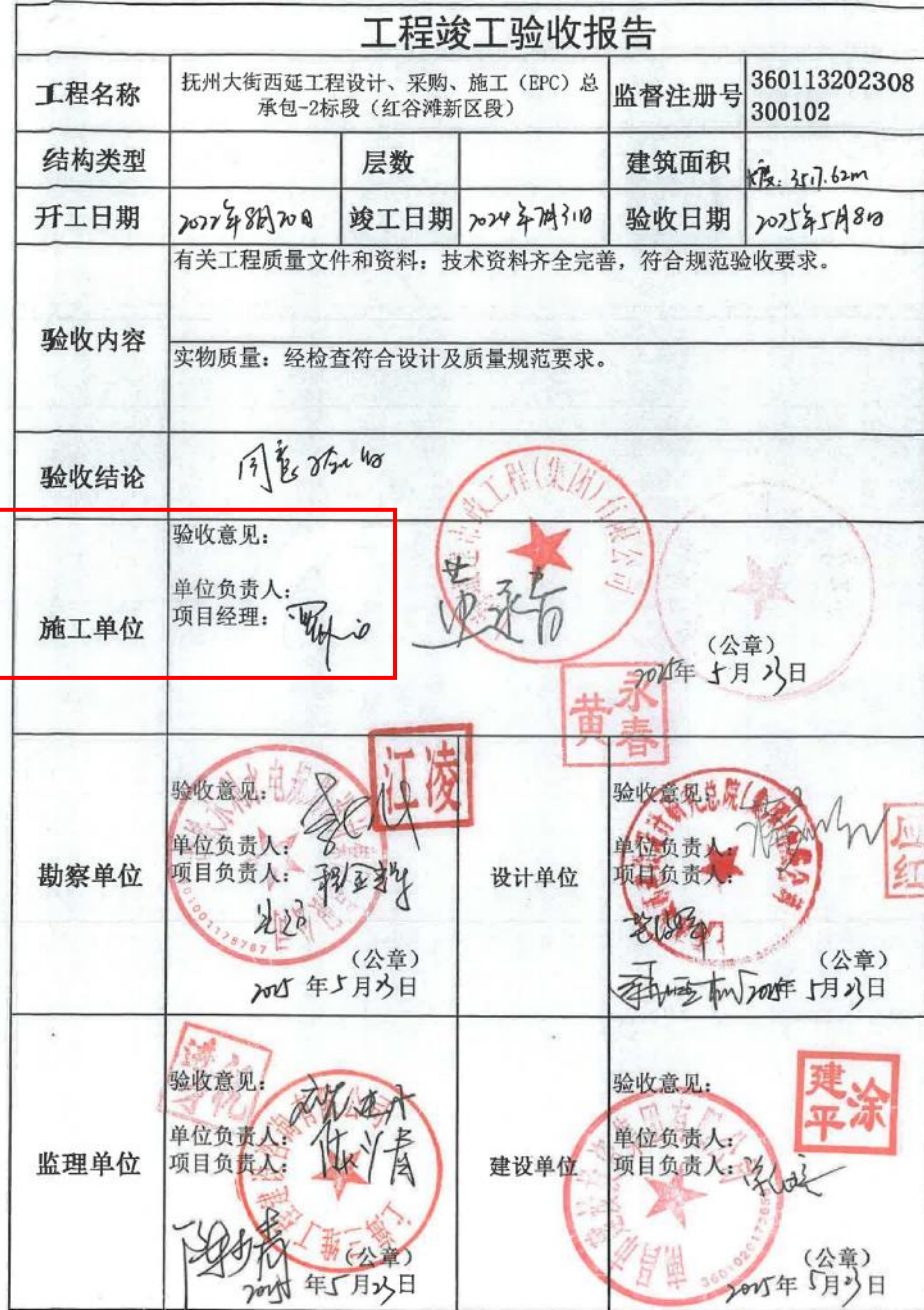 工程竣工验收报告
工程名称
抚州大街西延工程设计、采购、施工（EPC）总
承包-2标段（红谷滩新区段）
监督注册号
360113202308
300102
结构类型
层数
建筑面积
长度：3517.62m
开工日期
2022年8月20日
竣工日期
2024年7月31日
验收日期
2025年5月8日
验收内容
有关工程质量文件和资料：技术资料齐全完善，符合规范验收要求。
实物质量：经检查符合设计及质量规范要求。
验收结论
同意验收
施工单位
验收意见：
单位负责人：
项目经理：
（公章）
2025年 5月 23日
黄永春
勘察单位
验收意见：
单位负责人：
项目负责人：
（公章）
2025 年5月23日
江凌
设计单位
验收意见：
单位负责人：
项目负责人：
（公章）
2025年 5月23日
应红
监理单位
验收意见：
单位负责人：
项目负责人：
（公章）
2025 年5月23日
建设单位
验收意见：
单位负责人：
项目负责人：
（公章）
2025年 5月23日
涂建平